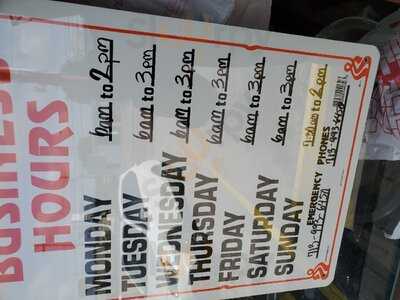 BUSINESS
HOURS
MONDAY 6am to 2pm
TUESDAY 6am to 3pm
WEDNESDAY 6am to 3pm
THURSDAY 6am to 3pm
FRIDAY 6am to 3pm
SATURDAY 6am to 3pm
SUNDAY 7:30am to 2pm
EMERGENCY PHONES